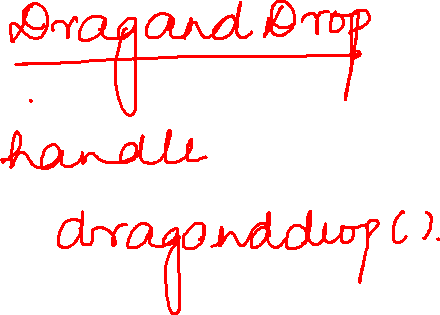 Drag and Drop
handle
draganddrop().